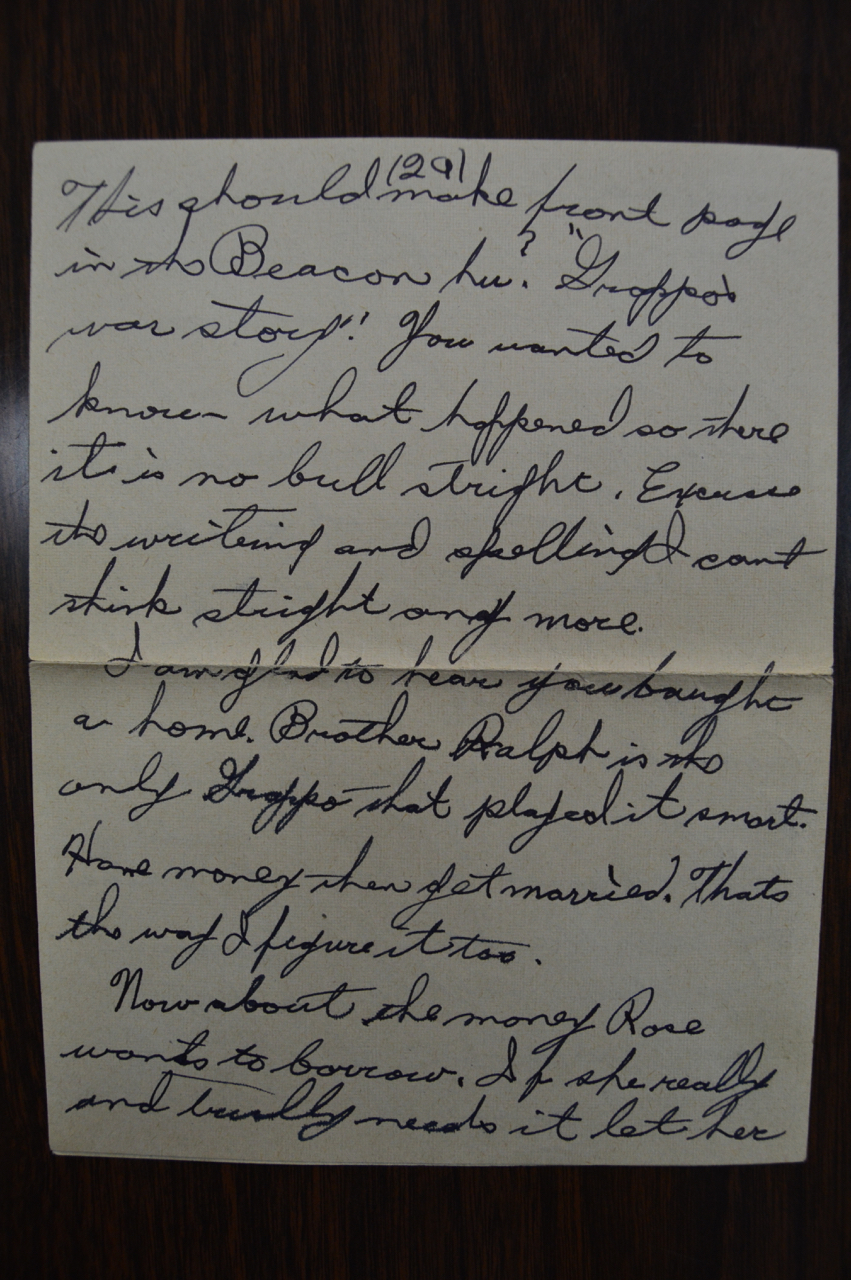 (29)
This should make front page
in the Beacon hu? "Grappo's
war story"! You wanted to
know what happened so there
it is no bull stright. Excuse
the writeing and spelling I cant
think stright any more.
I am glad to hear you bought
a home. Brother Ralph is the
only Grappo that played it smart.
Have money then get married. Thats
the way I figure it too.
Now about the money Rose
wants to borrow. If she really
and trully needs it let her